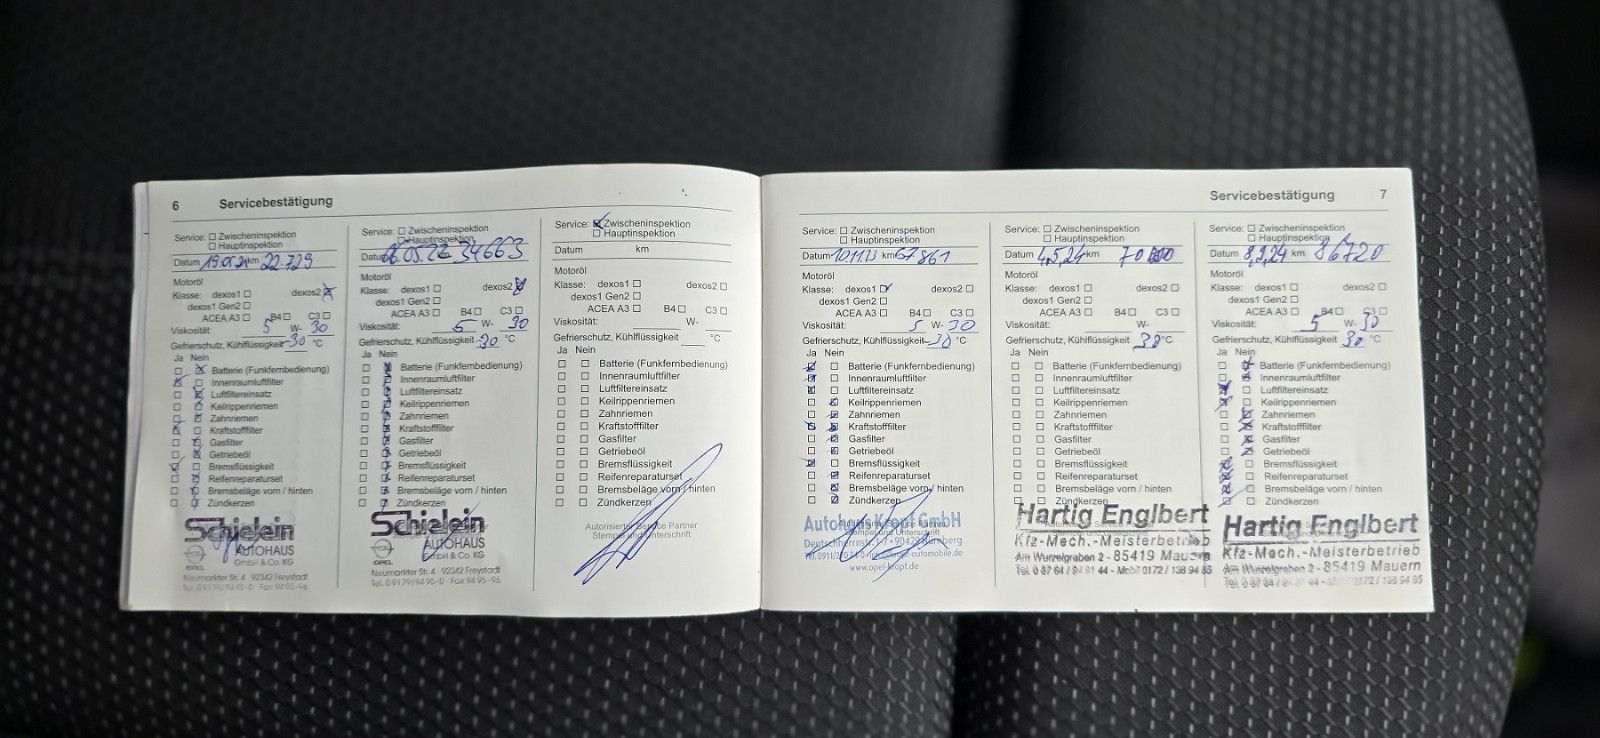 6 Servicebestätigung
Service: Zwischeninspektion
Hauptinspektion
Datum 19.05.21 km 22.729
Motoröl
Klasse: dexos1 dexos2
dexos1 Gen2
ACEA A3 B4 C3
Viskosität: 5 W- 30
Gefrierschutz, Kühlflüssigkeit -30 °C
Ja Nein
Batterie (Funkfernbedienung)
Innenraumluftfilter
Luftfiltereinsatz
Keilrippenriemen
Zahnriemen
Kraftstofffilter
Gasfilter
Getriebeöl
Bremsflüssigkeit
Reifenreparaturset
Bremsbeläge vorn / hinten
Zündkerzen
Schielein
AUTOHAUS
GmbH & Co. KG
OPEL
Neumarkter Str. 4 · 92342 Freystadt
Tel. 09179/94 95-0 · Fax 94 95-96
Service: Zwischeninspektion
Hauptinspektion
Datum 06.05.22 34663
Motoröl
Klasse: dexos1 dexos2
dexos1 Gen2
ACEA A3 B4 C3
Viskosität: 5 W- 30
Gefrierschutz, Kühlflüssigkeit -30 °C
Ja Nein
Batterie (Funkfernbedienung)
Innenraumluftfilter
Luftfiltereinsatz
Keilrippenriemen
Zahnriemen
Kraftstofffilter
Gasfilter
Getriebeöl
Bremsflüssigkeit
Reifenreparaturset
Bremsbeläge vorn / hinten
Zündkerzen
Schielein
AUTOHAUS
GmbH & Co. KG
OPEL
Neumarkter Str. 4 · 92342 Freystadt
Tel. 09179/94 95-0 · Fax 94 95-96
Service: Zwischeninspektion
Hauptinspektion
Datum km
Motoröl
Klasse: dexos1 dexos2
dexos1 Gen2
ACEA A3 B4 C3
Viskosität: W-
Gefrierschutz, Kühlflüssigkeit °C
Ja Nein
Batterie (Funkfernbedienung)
Innenraumluftfilter
Luftfiltereinsatz
Keilrippenriemen
Zahnriemen
Kraftstofffilter
Gasfilter
Getriebeöl
Bremsflüssigkeit
Reifenreparaturset
Bremsbeläge vorn / hinten
Zündkerzen
Autorisierter Service Partner
Stempel und Unterschrift
Servicebestätigung 7
Service: Zwischeninspektion
Hauptinspektion
Datum 10.11.23 km 67861
Motoröl
Klasse: dexos1 dexos2
dexos1 Gen2
ACEA A3 B4 C3
Viskosität: 5 W- 30
Gefrierschutz, Kühlflüssigkeit -38 °C
Ja Nein
Batterie (Funkfernbedienung)
Innenraumluftfilter
Luftfiltereinsatz
Keilrippenriemen
Zahnriemen
Kraftstofffilter
Gasfilter
Getriebeöl
Bremsflüssigkeit
Reifenreparaturset
Bremsbeläge vorn / hinten
Zündkerzen
Autohaus Kropf GmbH
www.opel-kropf.de
Service: Zwischeninspektion
Hauptinspektion
Datum 4,5,24 km
Motoröl
Klasse: dexos1 dexos2
dexos1 Gen2
ACEA A3 B4 C3
Viskosität: W-
Gefrierschutz, Kühlflüssigkeit 38 °C
Ja Nein
Batterie (Funkfernbedienung)
Innenraumluftfilter
Luftfiltereinsatz
Keilrippenriemen
Zahnriemen
Kraftstofffilter
Gasfilter
Getriebeöl
Bremsflüssigkeit
Reifenreparaturset
Bremsbeläge vorn / hinten
Zündkerzen
Hartig Englbert
Kfz-Mech.-Meisterbetrieb
Am Wurzelgraben 2 - 85419 Mauern
Service: Zwischeninspektion
Hauptinspektion
Datum 8,9,24 km 86720
Motoröl
Klasse: dexos1 dexos2
dexos1 Gen2
ACEA A3 B4 C3
Viskosität: 5 W- 30
Gefrierschutz, Kühlflüssigkeit 38 °C
Ja Nein
Batterie (Funkfernbedienung)
Innenraumluftfilter
Luftfiltereinsatz
Keilrippenriemen
Zahnriemen
Kraftstofffilter
Gasfilter
Getriebeöl
Bremsflüssigkeit
Reifenreparaturset
Bremsbeläge vorn / hinten
Zündkerzen
Hartig Englbert
Kfz-Mech.-Meisterbetrieb
Am Wurzelgraben 2 - 85419 Mauern